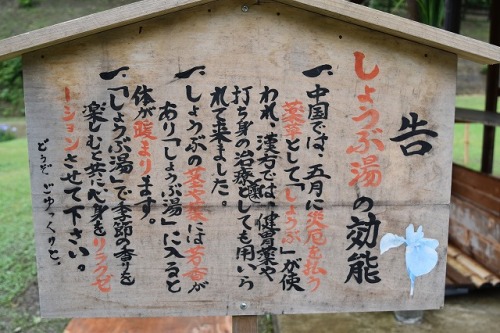 告
しょうぶ湯の効能
一、中国では、五月に災厄を払う
薬草として「しょうぶ」が使
われ、漢方では、健胃薬や
打ち身の治療としても用いら
れて来ました。
一、しょうぶの茎や葉には芳香が
あり「しょうぶ湯」に入ると
体が暖まります。
一、「しょうぶ湯」で季節の香りを
楽しむと共に心身をリラクゼ
ーションさせて下さい。
どうぞごゆっくりと。